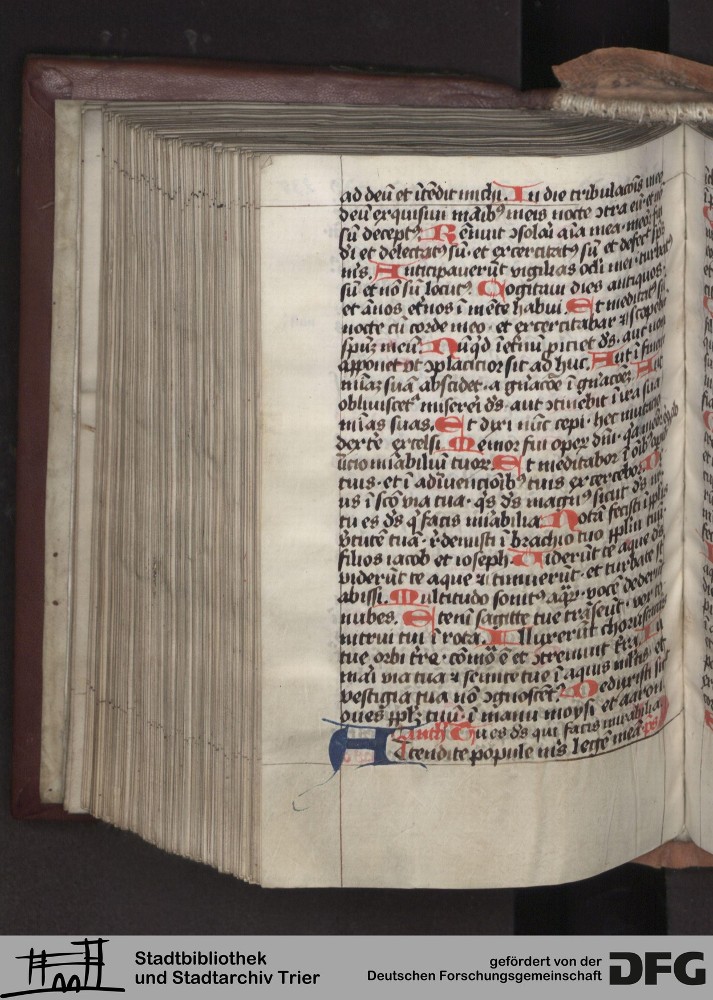 ad deū et ītēdit michi. In die tribulacōis mee
deū exquisiui māibꝰ meis nocte ɔtra eū et nō
sū deceptꝰ. Rēnuit ɔsolari aīa mea. memor fui
di et delectatꝰ sū. et exercitatꝰ sū et defecit spūs
mꝰs. Anticipauerūt vigilias ocłi mei. turbatꝰ
sū et nō sū locutꝰ. Cogitaui dies antiquos.
et ānos et̄nos ī mēte habui. Et meditatꝰ sū
nocte cū corde meo. et exercitabar ⁊ scopebā
spūꝫ meū. Nūqͥd ī et̄nū ꝓiciet dꝰs. aut nō
apponet vt ɔplacitior sit ad huc. Aut ī finem
mīaꝫ suā abscidet. a gn̄acōe ī gn̄acōeꝫ. Aut
obliuiscetˢ misereri dꝰs. aut ɔtinebit ī ira sua
mīas suas. Et dixi nūc cepi. hec mutatio
dexte excelsi. Memor fui oper dūi. qͥa memor ero ab
īicio mirabiliū tuoꝝ. Et meditabor ī oībꝰ opibꝰ
tuis. et ī adīuencōibꝰ tuis exercebor. De
us ī scō via tua. qͥs dꝰs magnꝰ sicut dꝰs nr̄
tu es dꝰs qͥ facis mirabilia. Notā fecisti ī pplis
vꝰtutē tuā. redemisti ī brachio tuo ppłm tuū.
filios iacob et ioseph. Viderūt te aque dꝰs.
viderūt te aque ⁊ timuerūt. et turbate st̄
abissi. Multitudo sonitꝰ aqͣꝝ. vocē dederūt
nubes. Etenī sagitte tue trāseūt. vox to
nitrui tui ī rota. Illuxerūt choruscatōes
tue orbi tr̄e. cōmōta ē et ɔtremuit tr̄a. In
mari via tua ⁊ semite tue ī aquis multis. et
vestigia tua nō ɔgnoscētˢ. Deduxisti sicut
oues ppłꝫ tuū. ī manu moysi et aaron.
Antħ Tu es dꝰs qui facis mirabilia. ps
Attendite popule mꝰs legē meā
Stadtbibliothek
und Stadtarchiv Trier
gefördert von der
Deutschen Forschungsgemeinschaft
DFG